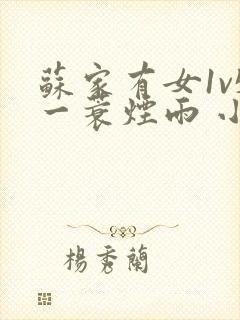 蘇家有女1v
一蓑煙雨 小
楊秀蘭